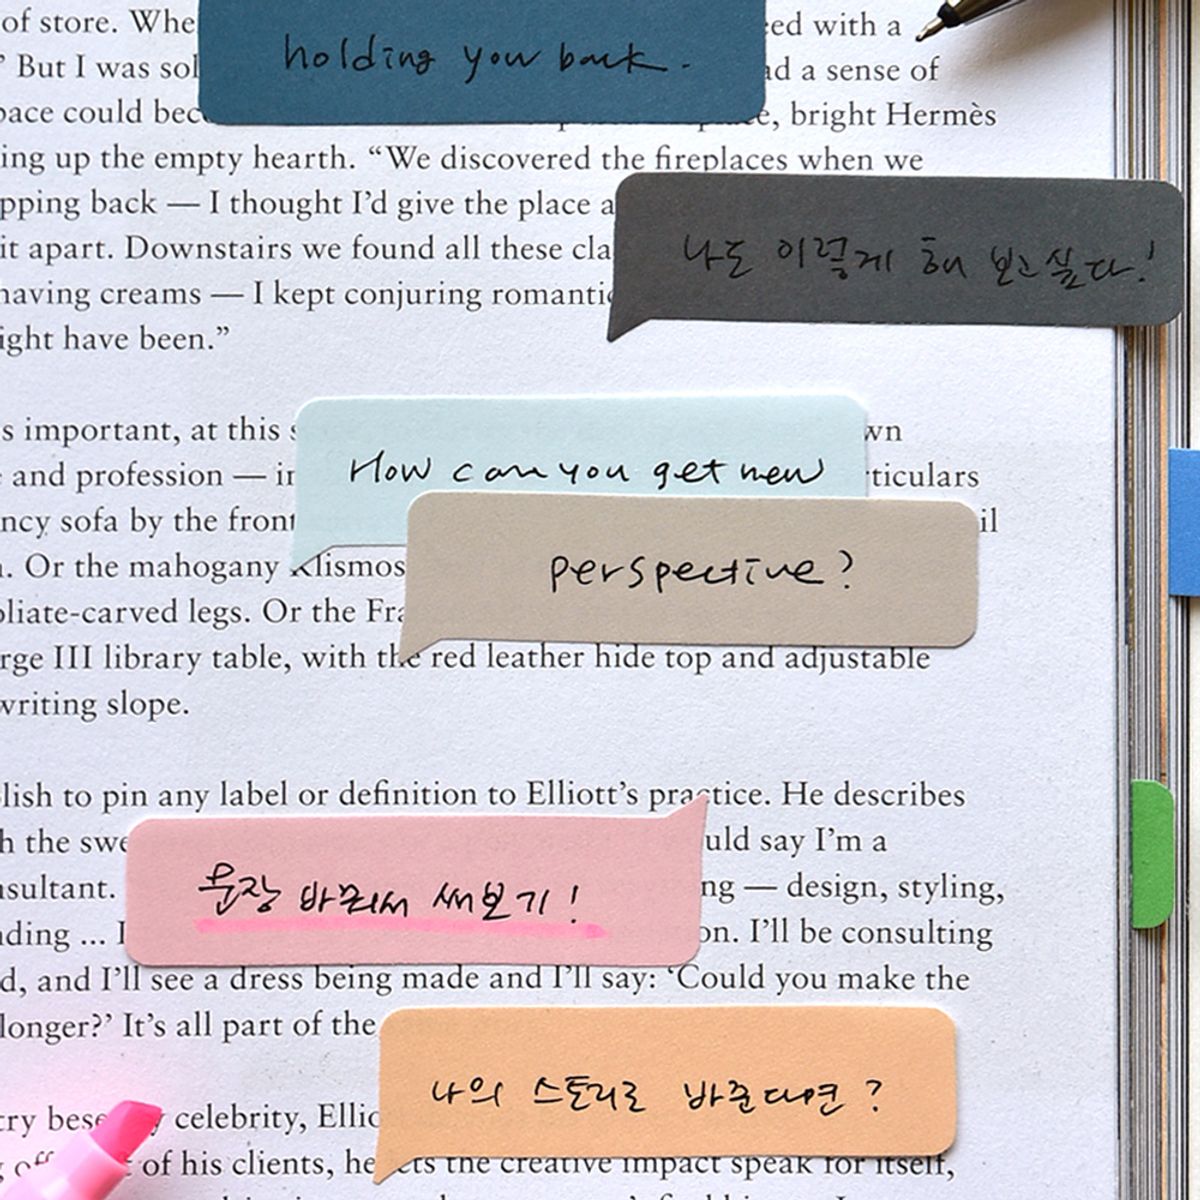 of store. Whe
ed with a
holding you back.
" But I was sol
ad a sense of
pace could bec
e, bright Hermès
ing up the empty hearth. “We discovered the fireplaces when we
pping back — I thought I’d give the place a
it apart. Downstairs we found all these cla
나도 이렇게 해 보고싶다!
having creams — I kept conjuring romantic
ight have been.”
s important, at this s
wn
and profession — in
How can you get new
rticulars
ncy sofa by the front
il
. Or the mahogany Klismos
perspective?
oliate-carved legs. Or the Fra
rge III library table, with the red leather hide top and adjustable
writing slope.
lish to pin any label or definition to Elliott’s practice. He describes
h the swe
uld say I’m a
nsultant.
문장 바꿔서 써보기!
ng — design, styling,
ding ... I
on. I’ll be consulting
d, and I’ll see a dress being made and I’ll say: ‘Could you make the
longer?’ It’s all part of the
try bese
celebrity, Ellio
나의 스토리로 바꾼다면?
of his clients, he lets the creative impact speak for itself,